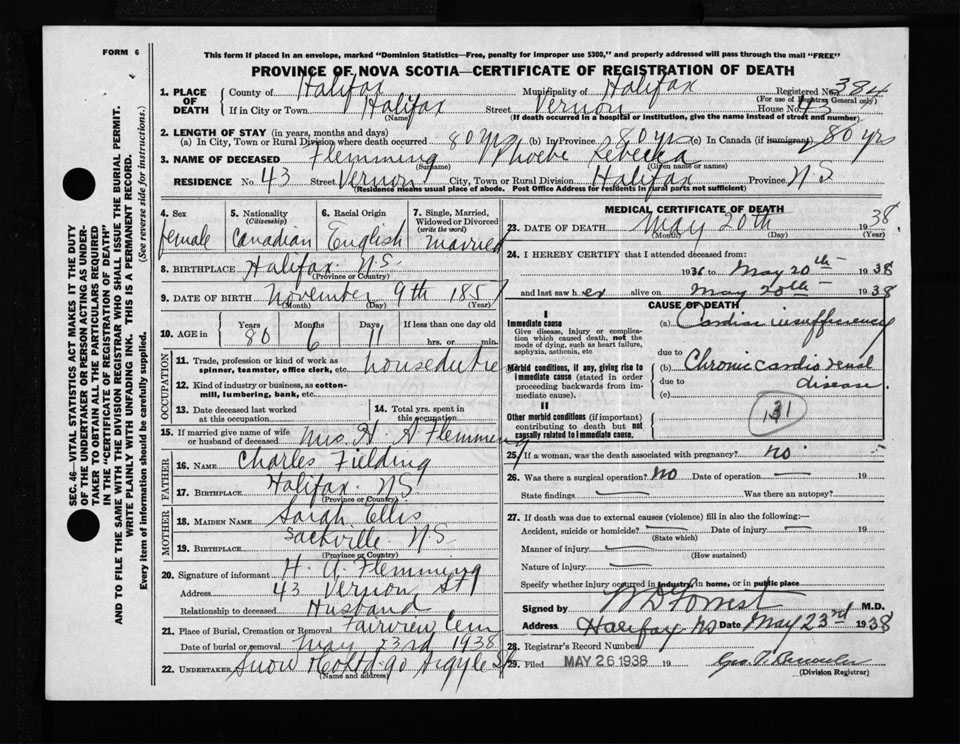 FORM 6
This form if placed in an envelope, marked "Dominion Statistics—Free, penalty for improper use $300," and properly addressed will pass through the mail "FREE"
PROVINCE OF NOVA SCOTIA—CERTIFICATE OF REGISTRATION OF DEATH
1. PLACE OF DEATH
County of Halifax Municipality of Halifax Registered No. 384
(For use of Registrar General only)
If in City or Town Halifax Street Vernon House No. 43
(Name) (If death occurred in a hospital or institution, give the name instead of street and number)
2. LENGTH OF STAY (in years, months and days)
(a) In City, Town or Rural Division where death occurred 80 yrs (b) In Province 80 yrs (c) In Canada (if immigrant) 80 yrs
3. NAME OF DECEASED Flemming Phoebe Rebecka
(Surname) (Given name or names)
RESIDENCE No. 43 Street Vernon City, Town or Rural Division Halifax Province N.S
(Residence means usual place of abode. Post Office Address for residents in rural parts not sufficient)
4. Sex female
5. Nationality (Citizenship) Canadian
6. Racial Origin English
7. Single, Married, Widowed or Divorced (write the word) married
8. BIRTHPLACE Halifax N.S.
(Province or Country)
9. DATE OF BIRTH November 9th 1857
(Month) (Day) (Year)
10. AGE in Years 80 Months 6 Days 11 If less than one day old hrs. or min.
OCCUPATION
11. Trade, profession or kind of work as spinner, teamster, office clerk, etc. housedutie
12. Kind of industry or business, as cotton-mill, lumbering, bank, etc.
13. Date deceased last worked at this occupation
14. Total yrs. spent in this occupation
15. If married give name of wife or husband of deceased Mrs. H. A Flemming
FATHER
16. NAME Charles Fielding
17. BIRTHPLACE Halifax N.S.
(Province or Country)
MOTHER
18. MAIDEN NAME Sarah Ellis
19. BIRTHPLACE Sackville N.S
(Province or Country)
20. Signature of informant H. A. Flemming
Address 43 Vernon St
Relationship to deceased Husband
21. Place of Burial, Cremation or Removal Fairview Cem
Date of burial or removal May 23rd 1938
22. UNDERTAKER Snow & Co Ltd 90 Argyle St
(Name and address)
MEDICAL CERTIFICATE OF DEATH
23. DATE OF DEATH May 20th 1938
(Month) (Day) (Year)
24. I HEREBY CERTIFY that I attended deceased from:
1936 to May 20th 1938
and last saw her alive on May 20th 1938
CAUSE OF DEATH
I
Immediate cause
Give disease, injury or complication which caused death, not the mode of dying, such as heart failure, asphyxia, asthenia, etc
(a) Cardiac insufficiency
due to
Morbid conditions, if any, giving rise to immediate cause (stated in order proceeding backwards from immediate cause).
(b) Chronic cardio renal disease.
due to
(c)
II
Other morbid conditions (if important) contributing to death but not causally related to immediate cause.
131
25. If a woman, was the death associated with pregnancy? no
26. Was there a surgical operation? No Date of operation — 19
State findings — Was there an autopsy?
27. If death was due to external causes (violence) fill in also the following:
Accident, suicide or homicide? — Date of injury — 19
(State which)
Manner of injury —
(How sustained)
Nature of injury —
Specify whether injury occurred in industry, in home, or in public place
Signed by W D Forrest M.D.
Address Halifax NS Date May 23rd 1938
28. Registrar's Record Number
29. Filed MAY 26 1938 19
(Division Registrar)
SEC. 46—VITAL STATISTICS ACT MAKES IT THE DUTY OF THE UNDERTAKER OR PERSON ACTING AS UNDERTAKER TO OBTAIN ALL THE PARTICULARS REQUIRED IN THE "CERTIFICATE OF REGISTRATION OF DEATH" AND TO FILE THE SAME WITH THE DIVISION REGISTRAR WHO SHALL ISSUE THE BURIAL PERMIT.
WRITE PLAINLY WITH UNFADING INK. THIS IS A PERMANENT RECORD.
Every item of information should be carefully supplied. (See reverse side for instructions.)